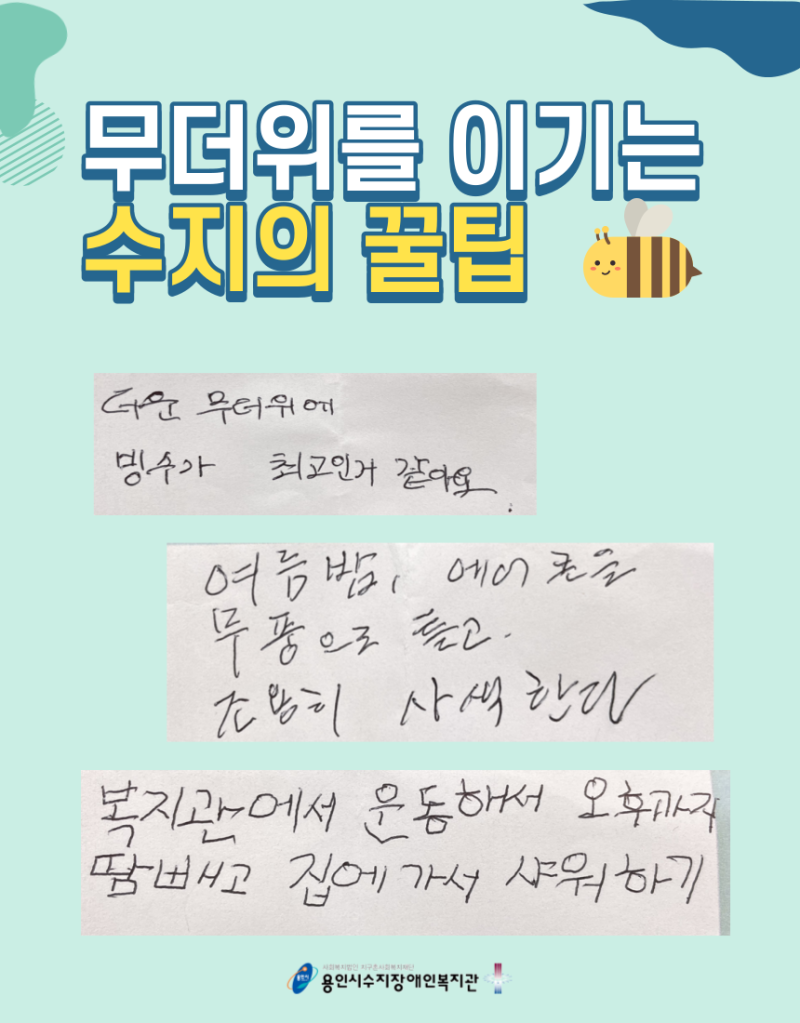 무더위를 이기는
수지의 꿀팁
더운 무더위에
빙수가 최고인거 같아요.
여름밤, 에어콘을
무풍으로 틀고.
조용히 사색한다
복지관에서 운동해서 오후까지
땀빼고 집에가서 샤워하기
사회복지법인 지구촌사회복지재단
용인시수지장애인복지관